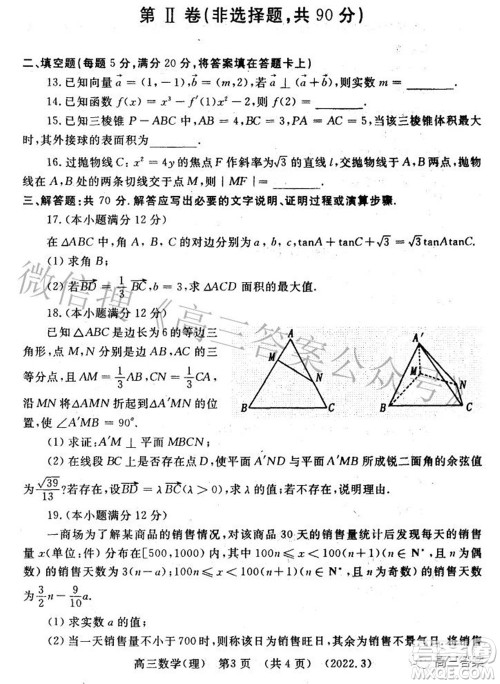 第 Ⅱ 卷(非选择题,共 90 分)
二、填空题(每题 5 分,满分 20 分,将答案填在答题卡上)
13. 已知向量a⃗=(1,-1),b⃗=(m,2),若a⃗⊥(a⃗+b⃗),则实数 m=______.
14. 已知函数 f(x)=x³-f′(1)x²-2,则 f(2)=______.
15. 已知三棱锥 P-ABC 中,AB=4,BC=3,PA=5,AC=5,当该三棱锥体积最大
时,其外接球的表面积为______.
16. 过抛物线 C: x²=4y 的焦点 F 作斜率为√3 的直线 l,交抛物线于 A,B 两点,抛物
线在 A,B 处的两条切线交于点 M,则|MF|=______.
三、解答题:共 70 分. 解答应写出必要的文字说明、证明过程或演算步骤.
17. (本小题满分 12 分)
在△ABC 中,角 A,B,C 的对边分别为 a,b,c,tanA+tanC+√3=√3tanAtanC.
(1) 求角 B;
(2) 若BD⃗=1/3 BC⃗,b=3,求△ACD 面积的最大值.
18. (本小题满分 12 分)
已知△ABC 是边长为 6 的等边三
角形,点 M,N 分别是边 AB,AC 的三
等分点,且 AM=1/3 AB,CN=1/3 CA,
沿 MN 将△AMN 折起到△A′MN 的位
置,使∠A′MB=90°.
A
M
N
B
C
A′
M
N
B
C
(1) 求证:A′M⊥平面 MBCN;
(2) 在线段 BC 上是否存在点 D,使平面 A′ND 与平面 A′MB 所成锐二面角的余弦值
为√39/13?若存在,设BD⃗=λBC⃗(λ>0),求 λ 的值;若不存在,说明理由.
19. (本小题满分 12 分)
一商场为了解某商品的销售情况,对该商品 30 天的销售量统计后发现每天的销售
量 x(单位:件) 分布在[500,1000) 内,其中 100n≤x<100(n+1)(n∈N*,且 n 为偶
数) 的销售天数为 3(n-a);100n≤x<100(n+1)(n∈N*,且 n 为奇数) 的销售天数为
3/2 n-9/10 a.
(1) 求实数 a 的值;
(2) 当一天销售量不小于 700 时,则称该日为
高三数学(理) 第3页 (共 4 页) (2022.3)
微信搜《高三答案公众号》
高三答案